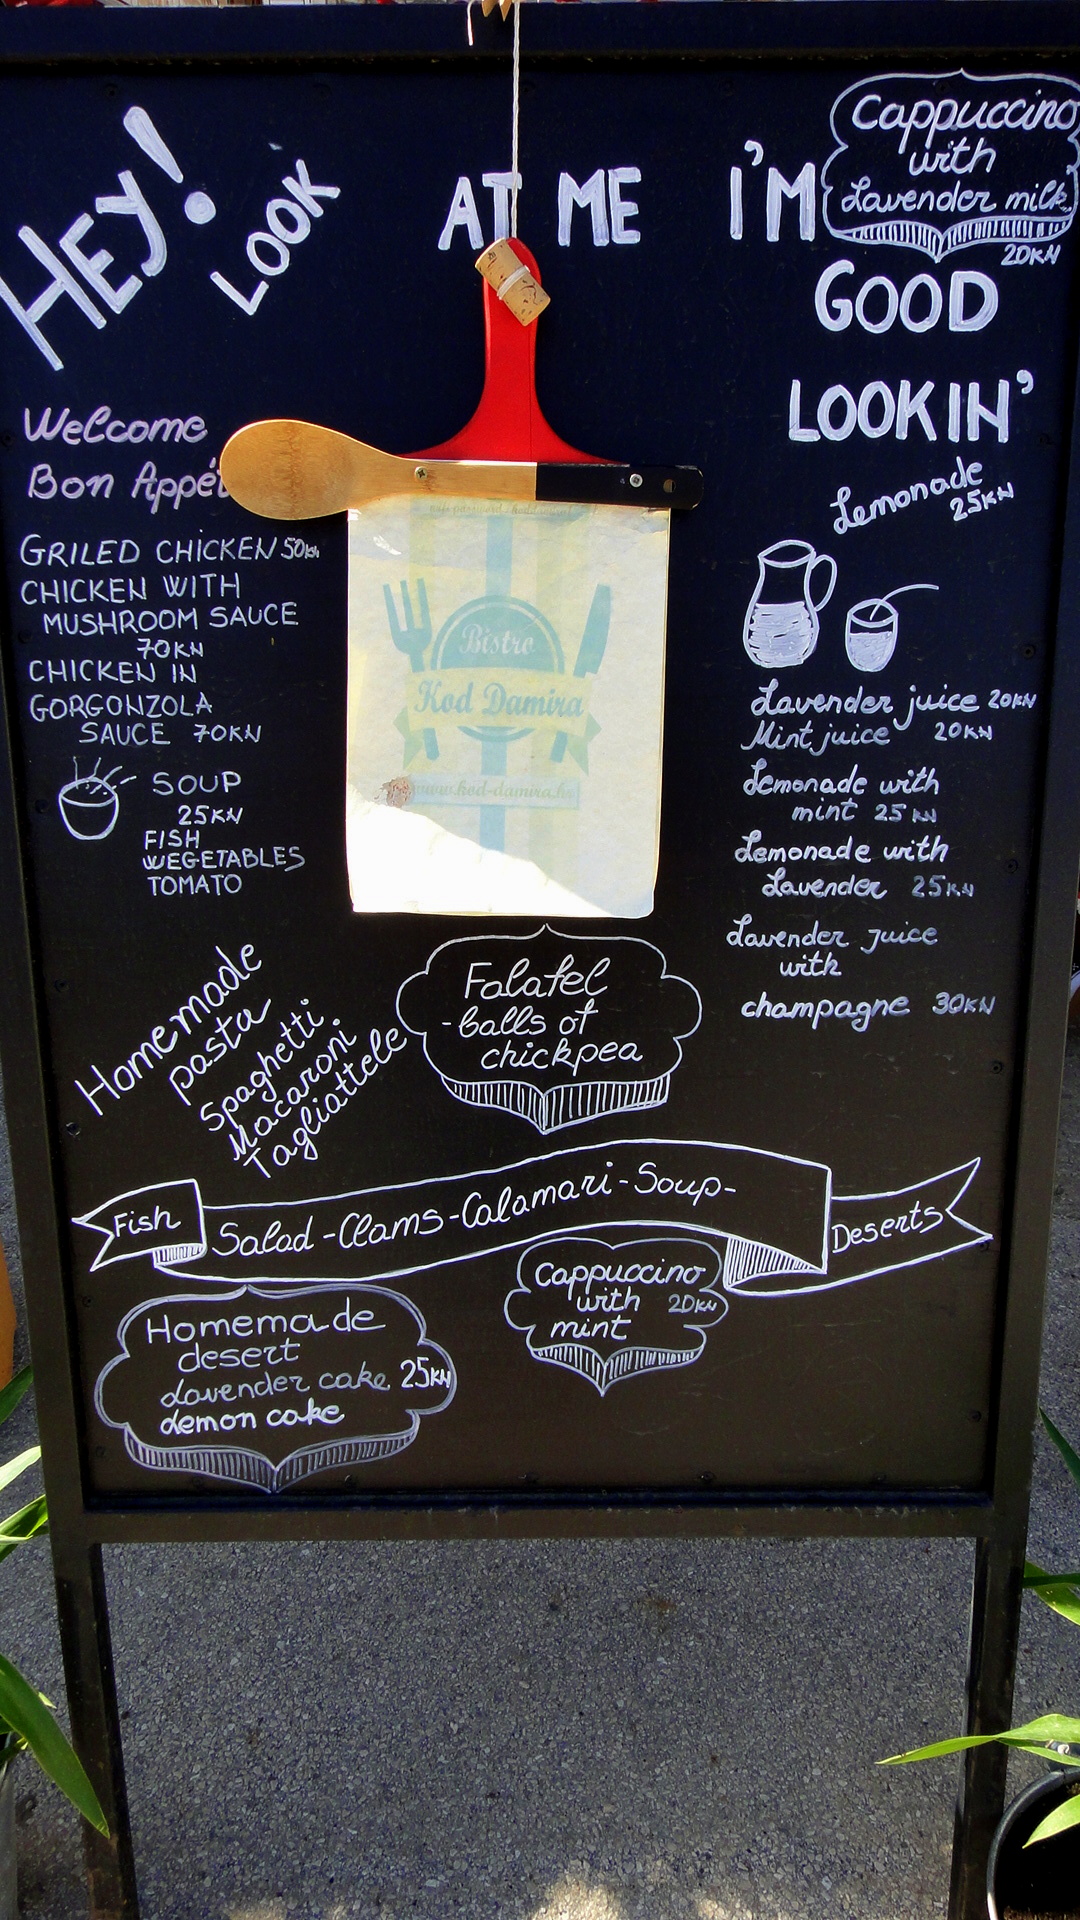 HEY!
LOOK
AT ME
I'M
GOOD
LOOKIN'
Cappuccino
with
Lavender milk
20KN
Welcome
Bon Appét
GRILED CHICKEN 50KN
CHICKEN WITH
MUSHROOM SAUCE
70KN
CHICKEN IN
GORGONZOLA
SAUCE 70KN
SOUP
25KN
FISH
WEGETABLES
TOMATO
Bistro
Kod Damira
www.kod-damira.hr
Lemonade
25KN
Lavender juice 20KN
Mint juice 20KN
Lemonade with
mint 25KN
Lemonade with
Lavender 25KN
Lavender juice
with
champagne 30KN
Homemade
pasta
Spaghetti
Macaroni
Tagliattele
Falafel
-balls of
chickpea
Fish
Salad-Clams-Calamari-Soup-
Deserts
Homemade
desert
Lavender cake 25KN
Lemon cake
Cappuccino
with 20KN
mint